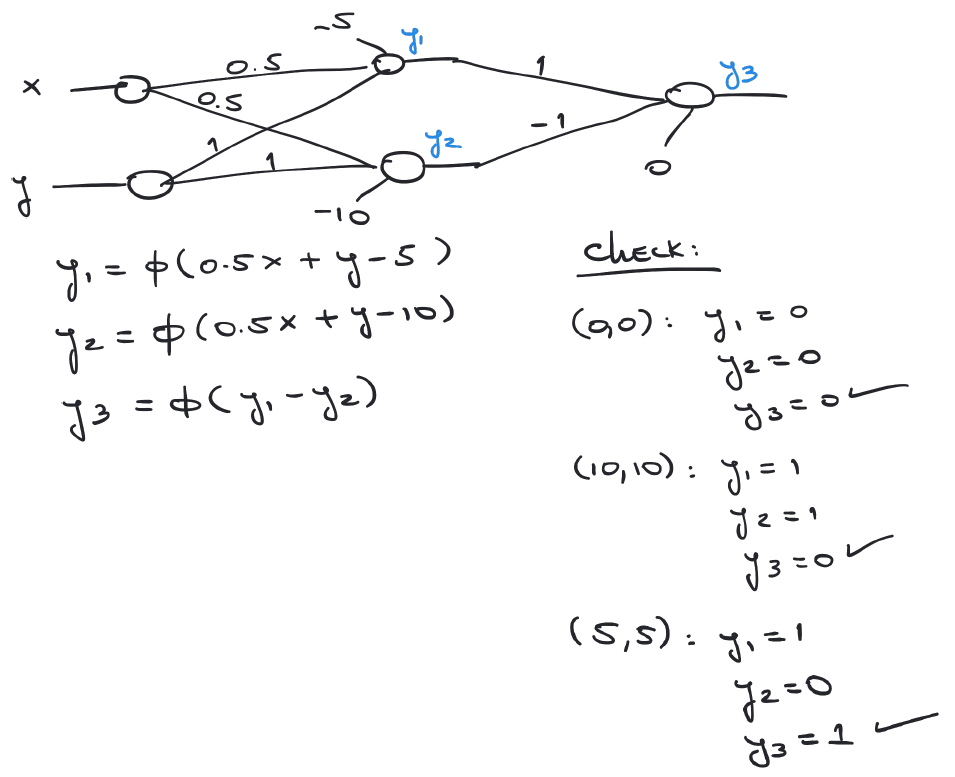 -5
y1
x
0.5
1
y3
0.5
-1
1
y2
1
y
0
-10
y1 = φ(0.5x + y-5)
y2 = φ(0.5x + y-10)
y3 = φ(y1 - y2)
check:
(0,0): y1 = 0
y2 = 0
y3 = 0 ✓
(10,10): y1 = 1
y2 = 1
y3 = 0 ✓
(5,5): y1 = 1
y2 = 0
y3 = 1 ✓